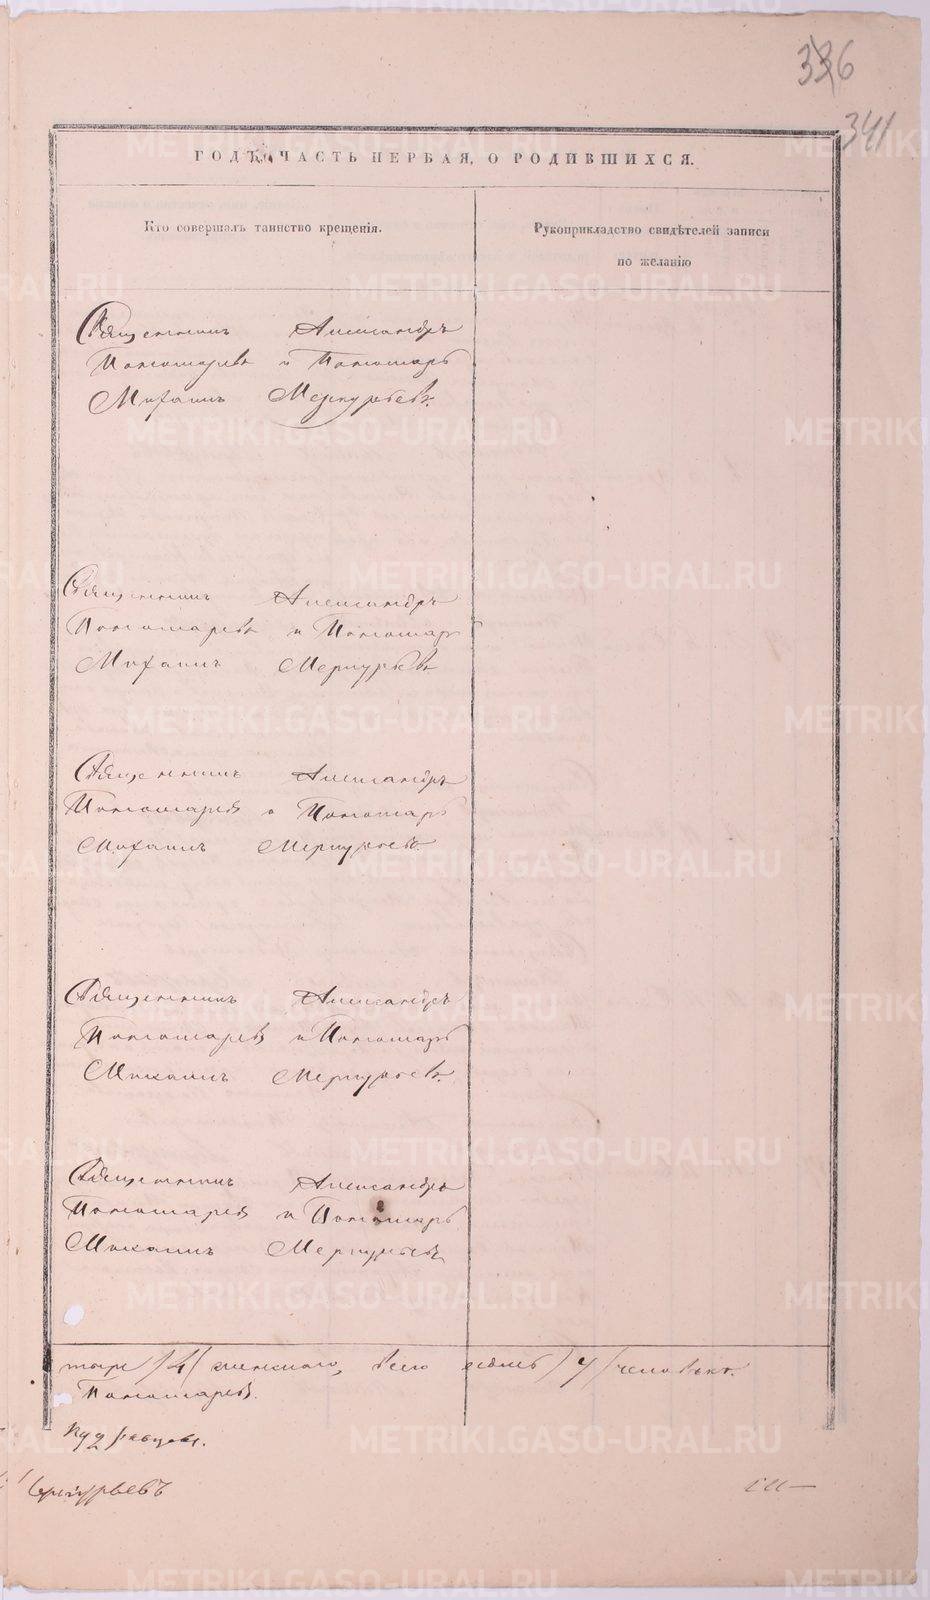 336
341
ГОДЪ, ЧАСТЬ ПЕРВАЯ, О РОДИВШИХСЯ.
Кто совершалъ таинство крещенія.
Рукоприкладство свидѣтелей записи
по желанію
Священникъ Александръ
Пономаревъ и Пономарь
Михаилъ Меркурьевъ.
Священникъ Александръ
Пономаревъ и Пономарь
Михаилъ Меркурьевъ
Священникъ Александръ
Пономаревъ и Пономарь
Михаилъ Меркурьевъ.
Священникъ Александръ
Пономаревъ и Пономарь
Михаилъ Меркурьевъ.
Священникъ Александръ
Пономаревъ и Пономарь
Михаилъ Меркурьевъ
тыре /4/ женскаго, всего семь /7/ человѣкъ.
Пономаревъ.
Кудрявцевъ.
еркурьевъ
METRIKI.GASO-URAL.RU